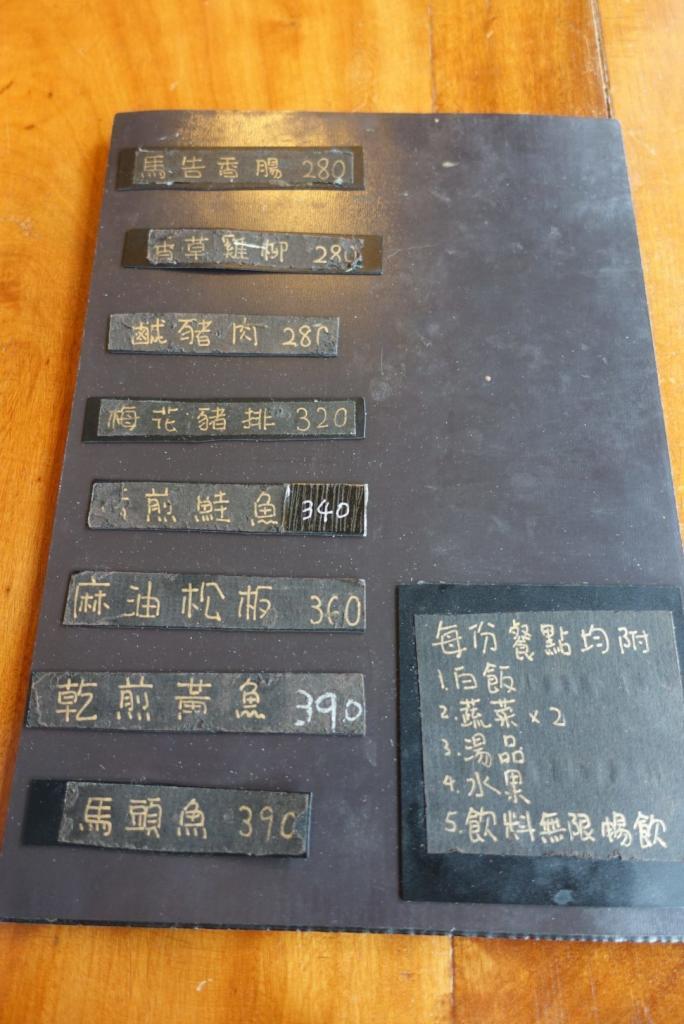 馬告香腸 280
香草雞柳 280
鹹豬肉 280
梅花豬排 320
煎鮭魚 340
麻油松板 360
乾煎黃魚 390
馬頭魚 390
每份餐點均附
1.白飯
2.蔬菜×2
3.湯品
4.水果
5.飲料無限暢飲